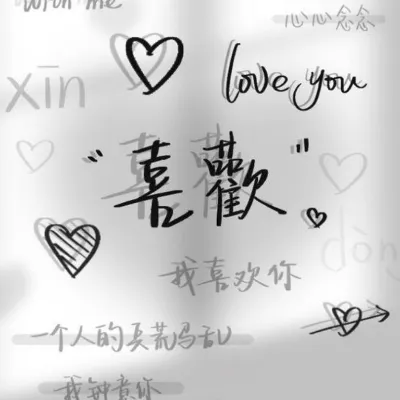 with me
心心念念
love you
xīn
"喜歡"
dòn
我喜欢你
一个人的兵荒马乱
我钟意你